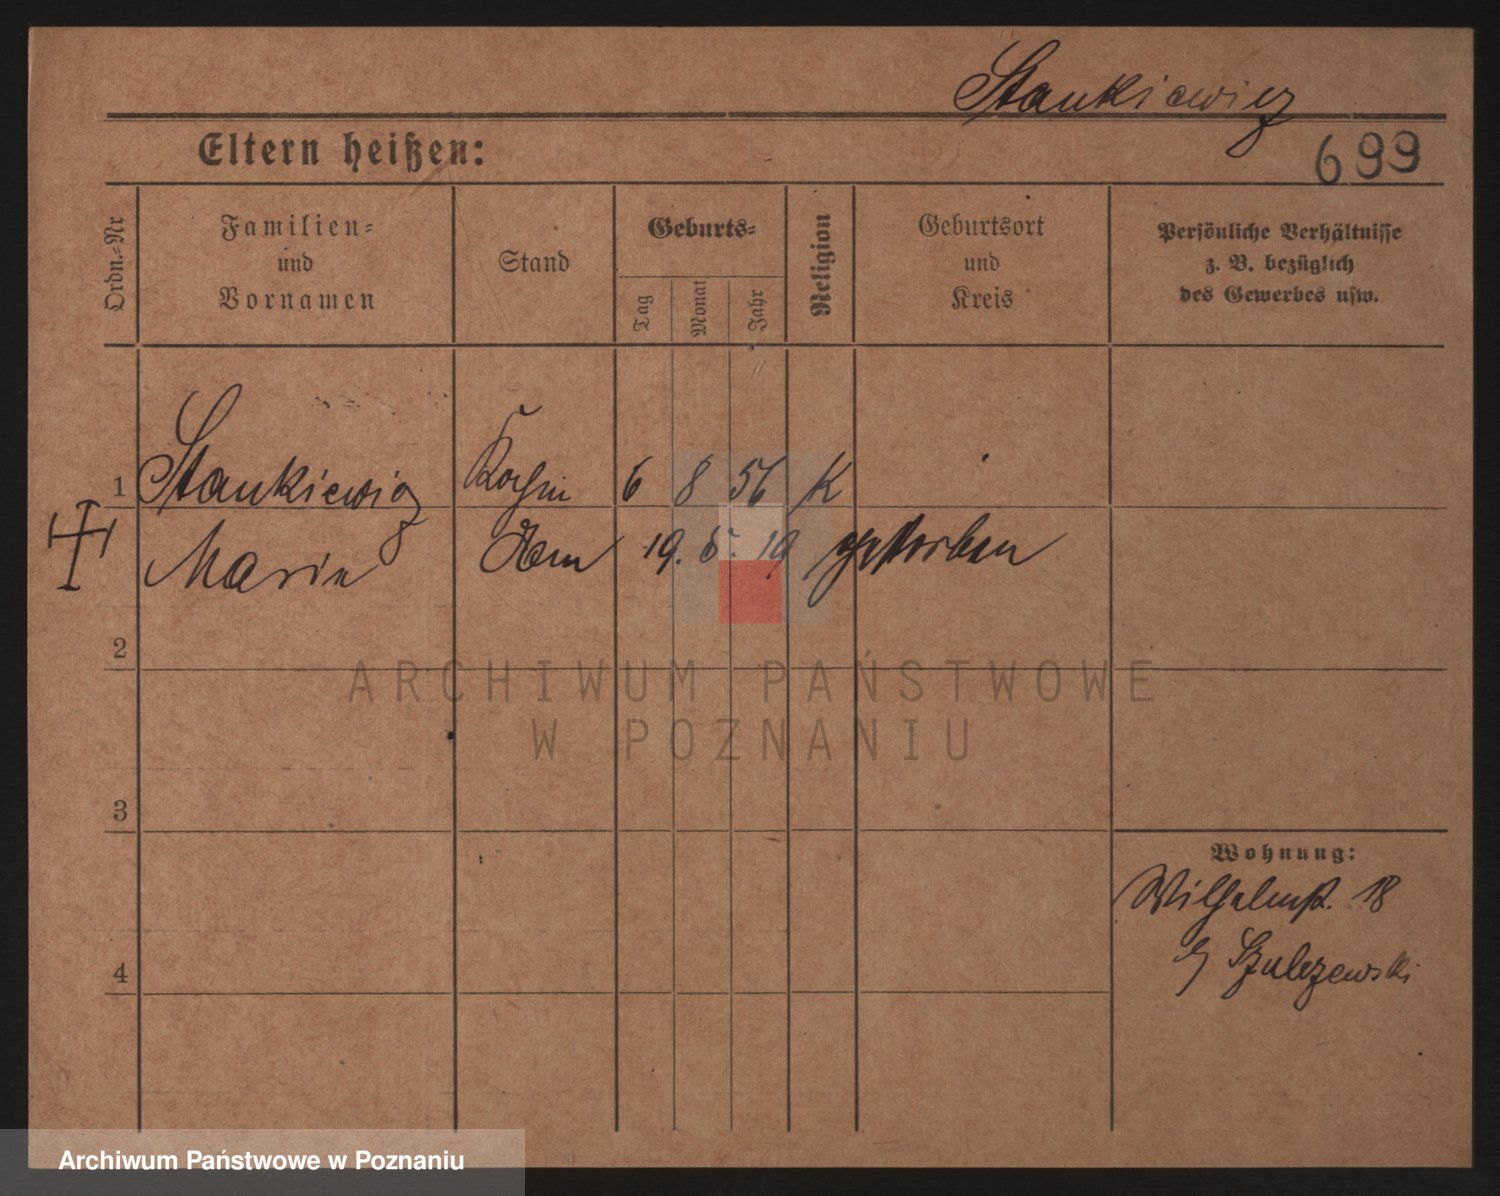 Stankiewicz
699
Eltern heißen:
Ordn.-Nr
Familien-
und
Vornamen
Stand
Geburts-
Tag
Monat
Jahr
Religion
Geburtsort
und
Kreis
Persönliche Verhältnisse
z. B. bezüglich
des Gewerbes usw.
1 Stankiewicz Köchin 6 8 56 K
Marie 19. 5. 19 gestorben
2
3
4
Wohnung:
Wilhelmstr. 18
Szulczewski
ARCHIWUM PAŃSTWOWE
W POZNANIU
Archiwum Państwowe w Poznaniu